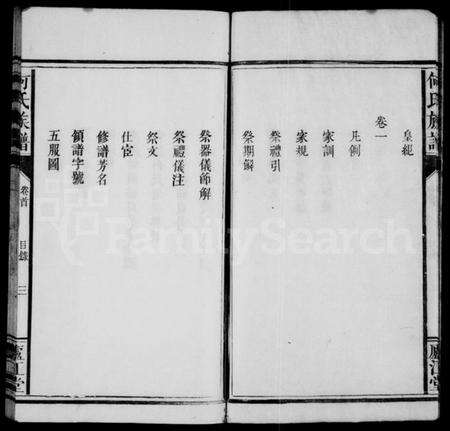 何氏族譜
廬江堂
皇經
卷一
凡例
家訓
家規
祭禮引
祭期解
祭器儀節解
祭禮儀注
祭文
仕宦
修譜芳名
領譜字號
五服圖
何氏族譜
卷首
目錄
三
廬江堂
FamilySearch